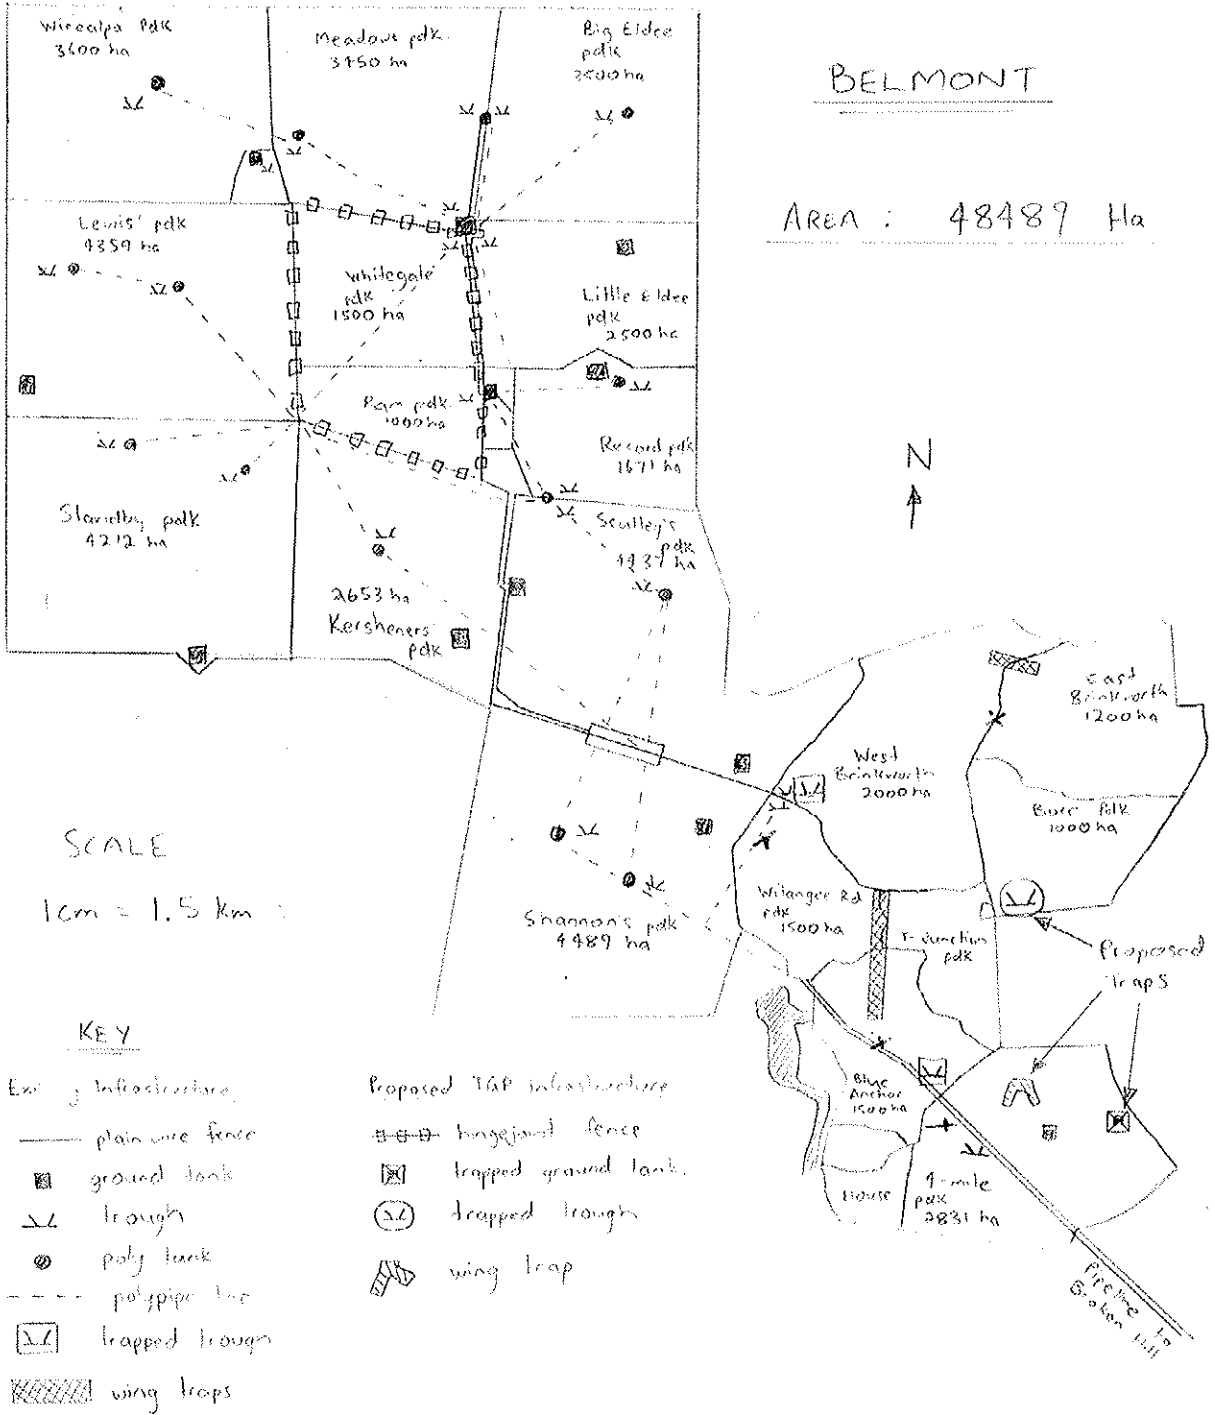 Wirealpa Pdk
3600 ha
Meadows pdk.
3450 ha
Big Eldee
pdk
3500 ha
BELMONT
AREA : 48489 Ha
Lewis' pdk
4359 ha
Whitegale
pdk
1500 ha
Little Eldee
pdk
2500 ha
Ram pdk
1000 ha
Record pdk
1671 ha
N
Standby pdk
4212 ha
Sculley's
pdk
2653 ha
Kersheners
pdk
East
Brinkworth
1200 ha
West
Brinkworth
2000 ha
pdk
1000 ha
SCALE
1cm = 1.5 km
Shannon's pdk
4489 ha
Wilangee Rd
pdk
1500 ha
T-Junction
pdk
Proposed
Traps
Blue
Anchor
1500 ha
House
4-mile
pdk
2831 ha
Pipeline to
Broken Hill
KEY
Infrastructure
plain wire fence
ground tank
trough
poly tank
polypipe line
trapped trough
wing traps
Proposed TGP infrastructure
hingejoint fence
trapped ground tank.
trapped trough
wing trap